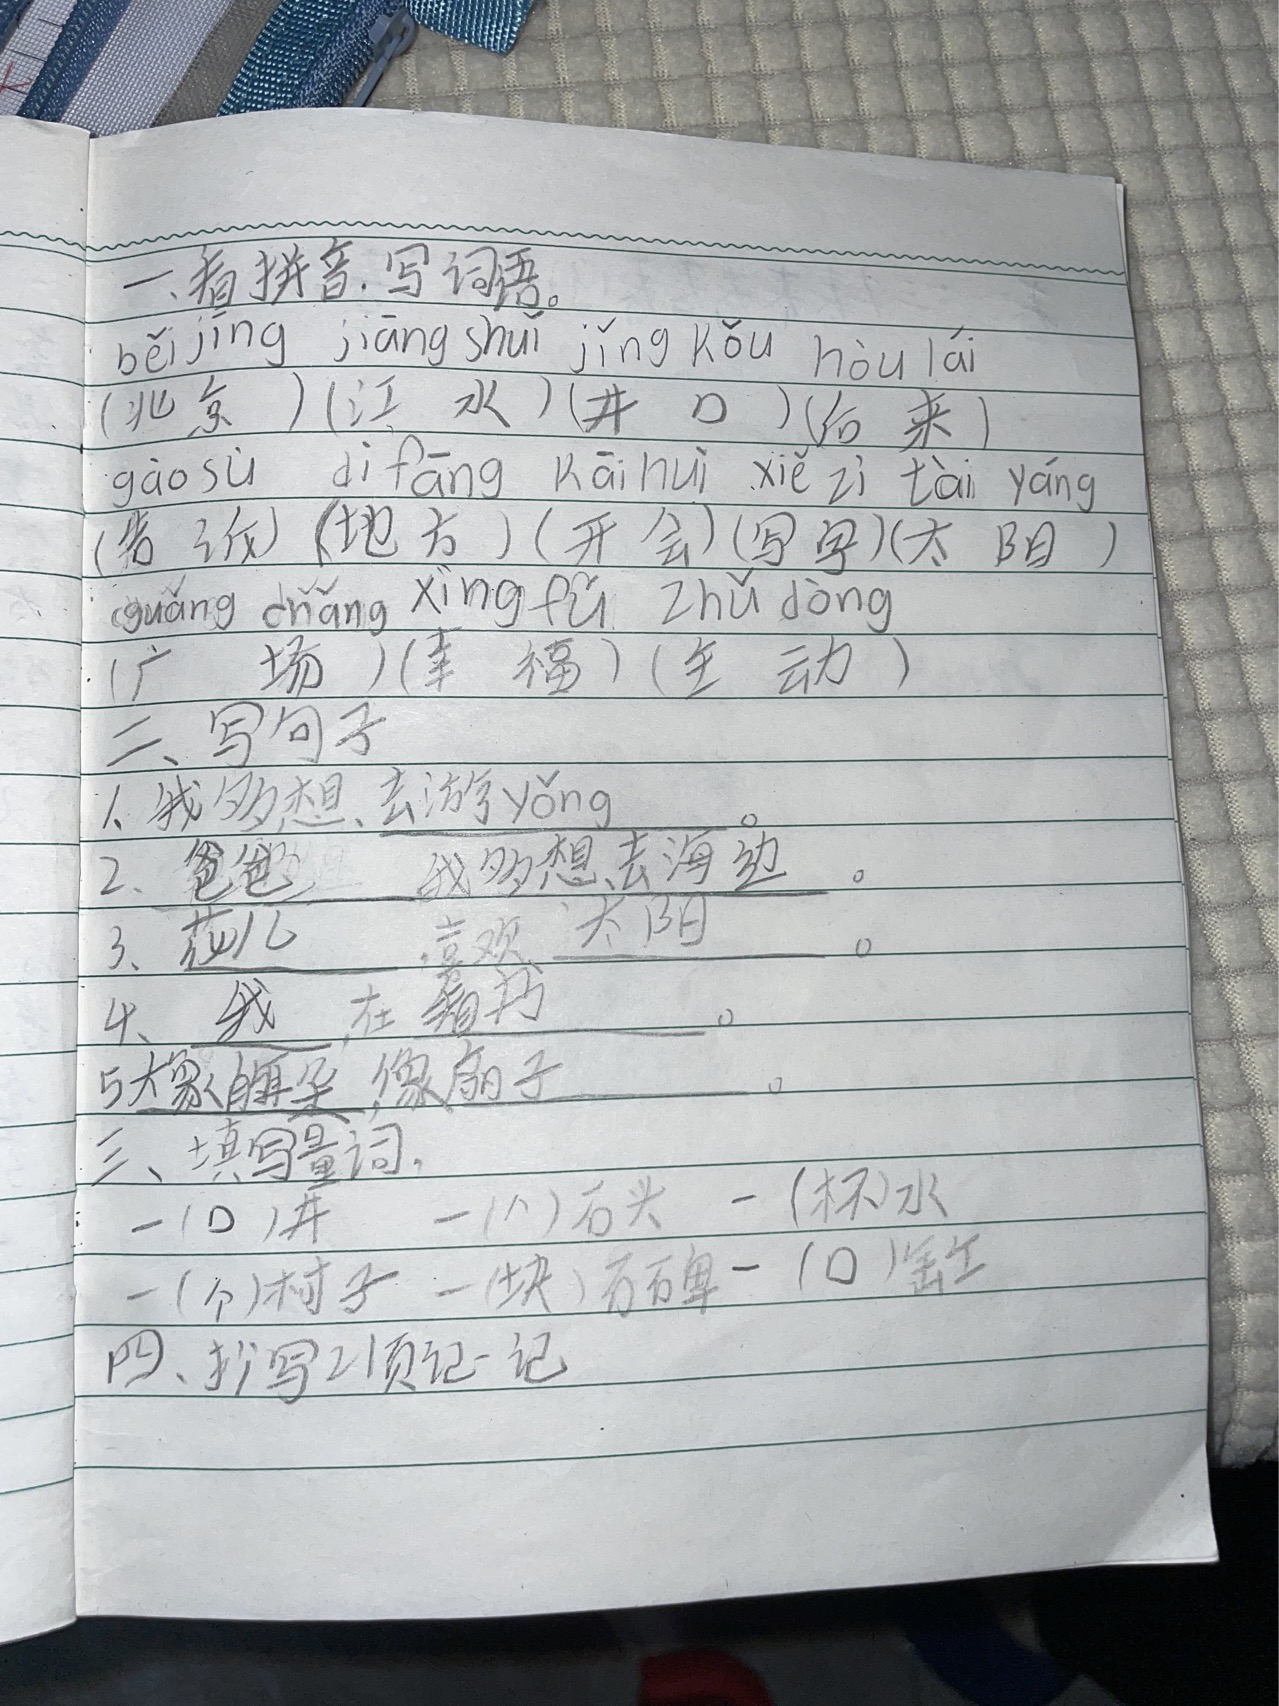 一、看拼音.写词语。
běijīng jiāngshuǐ jǐngkǒu hòulái
(北京)(江水)(井口)(后来)
gàosù dìfāng kāihuì xiězì tàiyáng
(告诉)(地方)(开会)(写字)(太阳)
guǎngchǎng xìngfú zhǔdòng
(广场)(幸福)(主动)
二、写句子
1、我多想、去游yǒng。
2、爸爸 我多想、去海边。
3、花儿 喜欢、太阳。
4、我 在 看书。
5大象的耳朵,像扇子。
三、填写量词.
一(口)井 一(个)石头 一(杯)水
一(个)村子 一(块)石碑 一(口)缸
四、抄写21页记一记